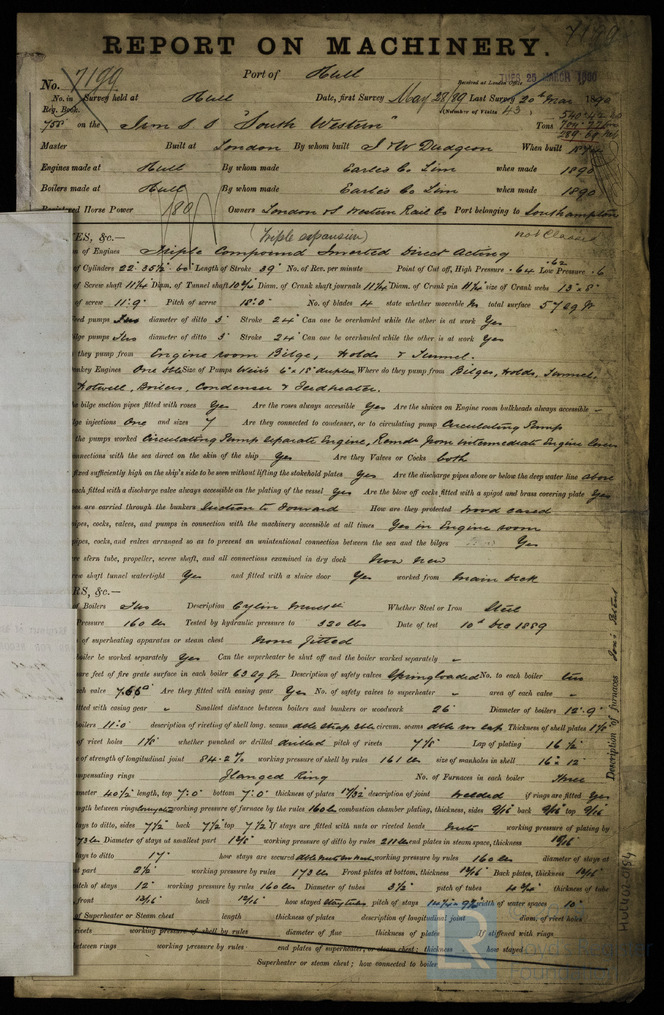 7199
REPORT ON MACHINERY.
No. 7199
Port of Hull
Received at London Office THURS 20 MARCH 1890
No. in Survey held at Hull Date, first Survey May 28/89 Last Survey 20th Mar 1890
Reg. Book. (Number of Visits 43)
755 on the Iron S S "South Western" Tons
Master Built at London By whom built J & W Dudgeon When built 1874
Engines made at Hull By whom made Earle's Co Lim when made 1890
Boilers made at Hull By whom made Earle's Co Lim when made 1890
Registered Horse Power 180 Owners London & S Western Rail Co Port belonging to Southampton
not Classed
ES, &c.— (Triple expansion)
of Engines Triple Compound Inverted Direct Acting
of Cylinders 22" 35½" 60" Length of Stroke 39" No. of Rev. per minute Point of Cut off, High Pressure .64 .62 Low Pressure .6
of Screw shaft Diam. of Tunnel shaft Diam. of Crank shaft journals Diam. of Crank pin size of Crank webs 13" × 8"
of screw 11'.9" Pitch of screw 18'.0" No. of blades 4 state whether moveable No total surface
eed pumps Two diameter of ditto 3" Stroke 24" Can one be overhauled while the other is at work Yes
lge pumps Two diameter of ditto 3" Stroke 24" Can one be overhauled while the other is at work Yes
they pump from Engine room Bilge, Holds & Tunnel.
nkey Engines One Size of Pumps Weir's 6" × 15" duplex Where do they pump from Bilges, Holds, Tunnel,
Hotwell, Boilers, Condenser & Feedheater.
he bilge suction pipes fitted with roses Yes Are the roses always accessible Yes Are the sluices on Engine room bulkheads always accessible –
lge injections One and sizes 7 Are they connected to condenser, or to circulating pump Circulating Pump
the pumps worked Circulating Pump separate Engine, Remdr from Intermediate Engine
nnections with the sea direct on the skin of the ship Yes Are they Valves or Cocks both
fixed sufficiently high on the ship's side to be seen without lifting the stokehold plates Yes Are the discharge pipes above or below the deep water line above
each fitted with a discharge valve always accessible on the plating of the vessel Yes Are the blow off cocks fitted with a spigot and brass covering plate Yes
es are carried through the bunkers Suction to Forward How are they protected Wood cased
ipes, cocks, valves, and pumps in connection with the machinery accessible at all times Yes in Engine room
pipes, cocks, and valves arranged so as to prevent an unintentional connection between the sea and the bilges Yes
re stern tube, propeller, screw shaft, and all connections examined in dry dock Now new
ew shaft tunnel watertight Yes and fitted with a sluice door Yes worked from main deck
RS, &c.—
of Boilers Two Description Cylin Whether Steel or Iron Steel
Pressure 160 lbs Tested by hydraulic pressure to 320 lbs Date of test 10th Dec 1889
of superheating apparatus or steam chest None fitted
boiler be worked separately Yes Can the superheater be shut off and the boiler worked separately –
are feet of fire grate surface in each boiler 63 sq ft Description of safety valves Spring loaded No. to each boiler two
ach valve 7.65" Are they fitted with easing gear Yes No. of safety valves to superheater – area of each valve –
itted with easing gear – Smallest distance between boilers and bunkers or woodwork 26" Diameter of boilers 12'.9"
oilers 11'.0" description of riveting of shell long. seams dble strap circum. seams dble riv lap Thickness of shell plates
of rivet holes whether punched or drilled drilled pitch of rivets 7⅞ Lap of plating 16½
e of strength of longitudinal joint 84.2% working pressure of shell by rules 161 lbs size of manholes in shell 16" × 12"
mpensating rings Flanged Ring No. of Furnaces in each boiler Three
ameter 40½ length, top 7'.0" bottom 7'.0" thickness of plates 17/32 description of joint welded if rings are fitted Yes
ngth between rings working pressure of furnace by the rules 160 lbs combustion chamber plating, thickness, sides 9/16 back 9/16 top 9/16
ays to ditto, sides 7½ back 7½ top 7½ If stays are fitted with nuts or riveted heads Nuts working pressure of plating by
73 lbs Diameter of stays at smallest part working pressure of ditto by rules 211 lbs end plates in steam space, thickness
ays to ditto 17" how stays are secured working pressure by rules 160 lbs diameter of stays at
st part working pressure by rules 173 lbs Front plates at bottom, thickness 13/16 Back plates, thickness 13/16
itch of stays 12" working pressure by rules 160 lbs Diameter of tubes 3½ pitch of tubes thickness of tube
front 13/16 back 13/16 how stayed Stay tubes pitch of stays width of water spaces 10"
of Superheater or Steam chest length thickness of plates description of longitudinal joint diam. of rivet holes
rivets working pressure of shell by rules diameter of flue thickness of plates If stiffened with rings
etween rings working pressure by rules end plates of superheater, or steam chest; thickness how stayed
Superheater or steam chest; how connected to boiler
Description of furnaces Fox's Patent
HUL402-0184
LR